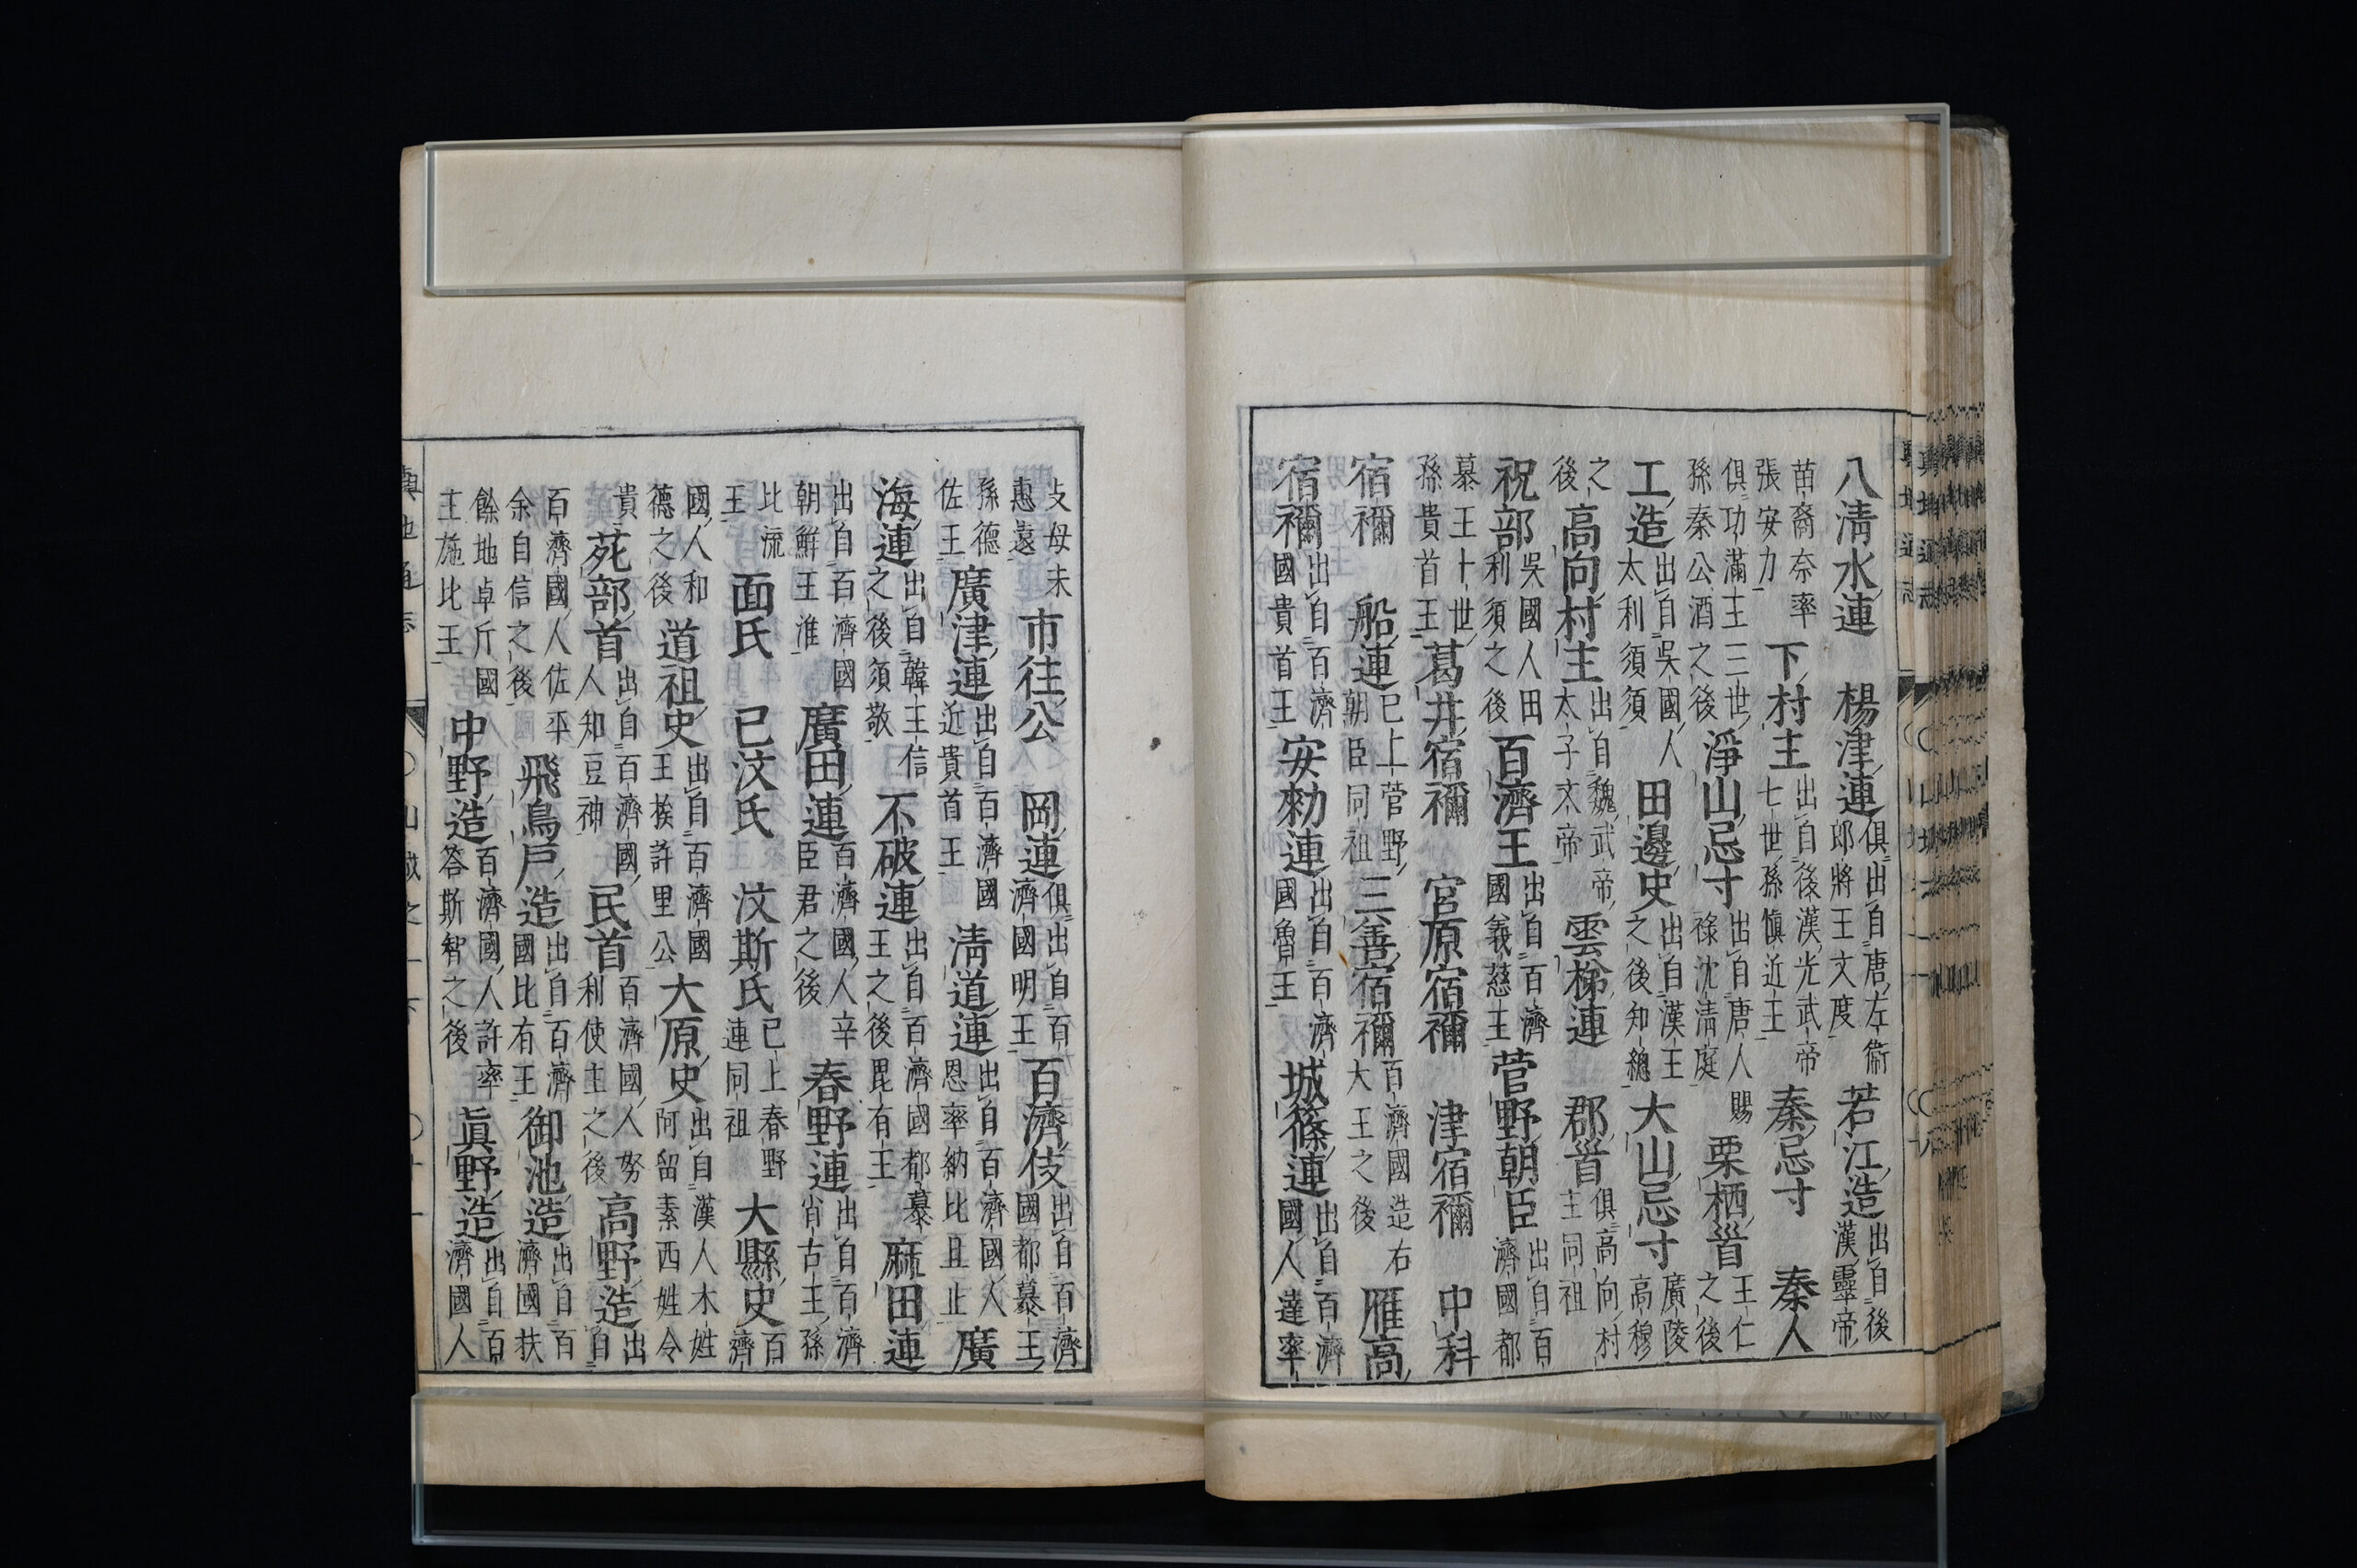 八清水連 楊津連 俱出自唐左衞郎將王文度 若江造 出自後漢靈帝
苗裔奈率張安力 下村主 出自後漢光武帝七世孫慎近王 秦忌寸 秦人
俱功滿王三世孫秦公酒之後 淨山忌寸 出自唐人賜祿沈清庭 栗栖首 王仁之後
工造 出自吳國人太利須須 田邊史 出自漢王之後知緫 大山忌寸 廣陵高穆
之後 高向村主 出自魏武帝太子文帝 雲梯連 郡首 俱高向村主同祖
祝部 吳國人田利須之後 百濟王 出自百濟國義慈王 菅野朝臣 出自百濟國都
慕王十世孫貴首王 葛井宿禰 官原宿禰 津宿禰 中科
宿禰 船連 已上菅野朝臣同祖 三善宿禰 百濟國造右大王之後 雁高
宿禰 出自百濟國貴首王 安勑連 出自百濟國魯王 城篠連 出自百濟國人達率
攴母末惠遠 市往公 岡連 俱出自百濟國明王 百濟伎 出自百濟國都慕王
孫德佐王 廣津連 出自百濟國近貴首王 清道連 出自百濟國人恩率納比且止 廣
海連 出自韓王信之後須敬 不破連 出自百濟國都慕王之後毘有王 麻田連
出自百濟國朝鮮王淮 廣田連 百濟國人辛臣君之後 春野連 出自百濟肖古王孫
比流王 面氏 已汶氏 汶斯氏 已上春野連同祖 大縣史 百濟
國人和德之後 道祖史 出自百濟國王挨許里公 大原史 出自漢人木姓阿留素西姓令
貴 苑部首 出自百濟國人知豆神 民首 百濟國人努利使主之後 高野造 出自
百濟國人佐平余自信之後 飛鳥戶造 出自百濟國比有王 御池造 出自百濟國扶
餘地卓斤國主施比王 中野造 百濟國人許率答斯智之後 眞野造 出自百濟國人